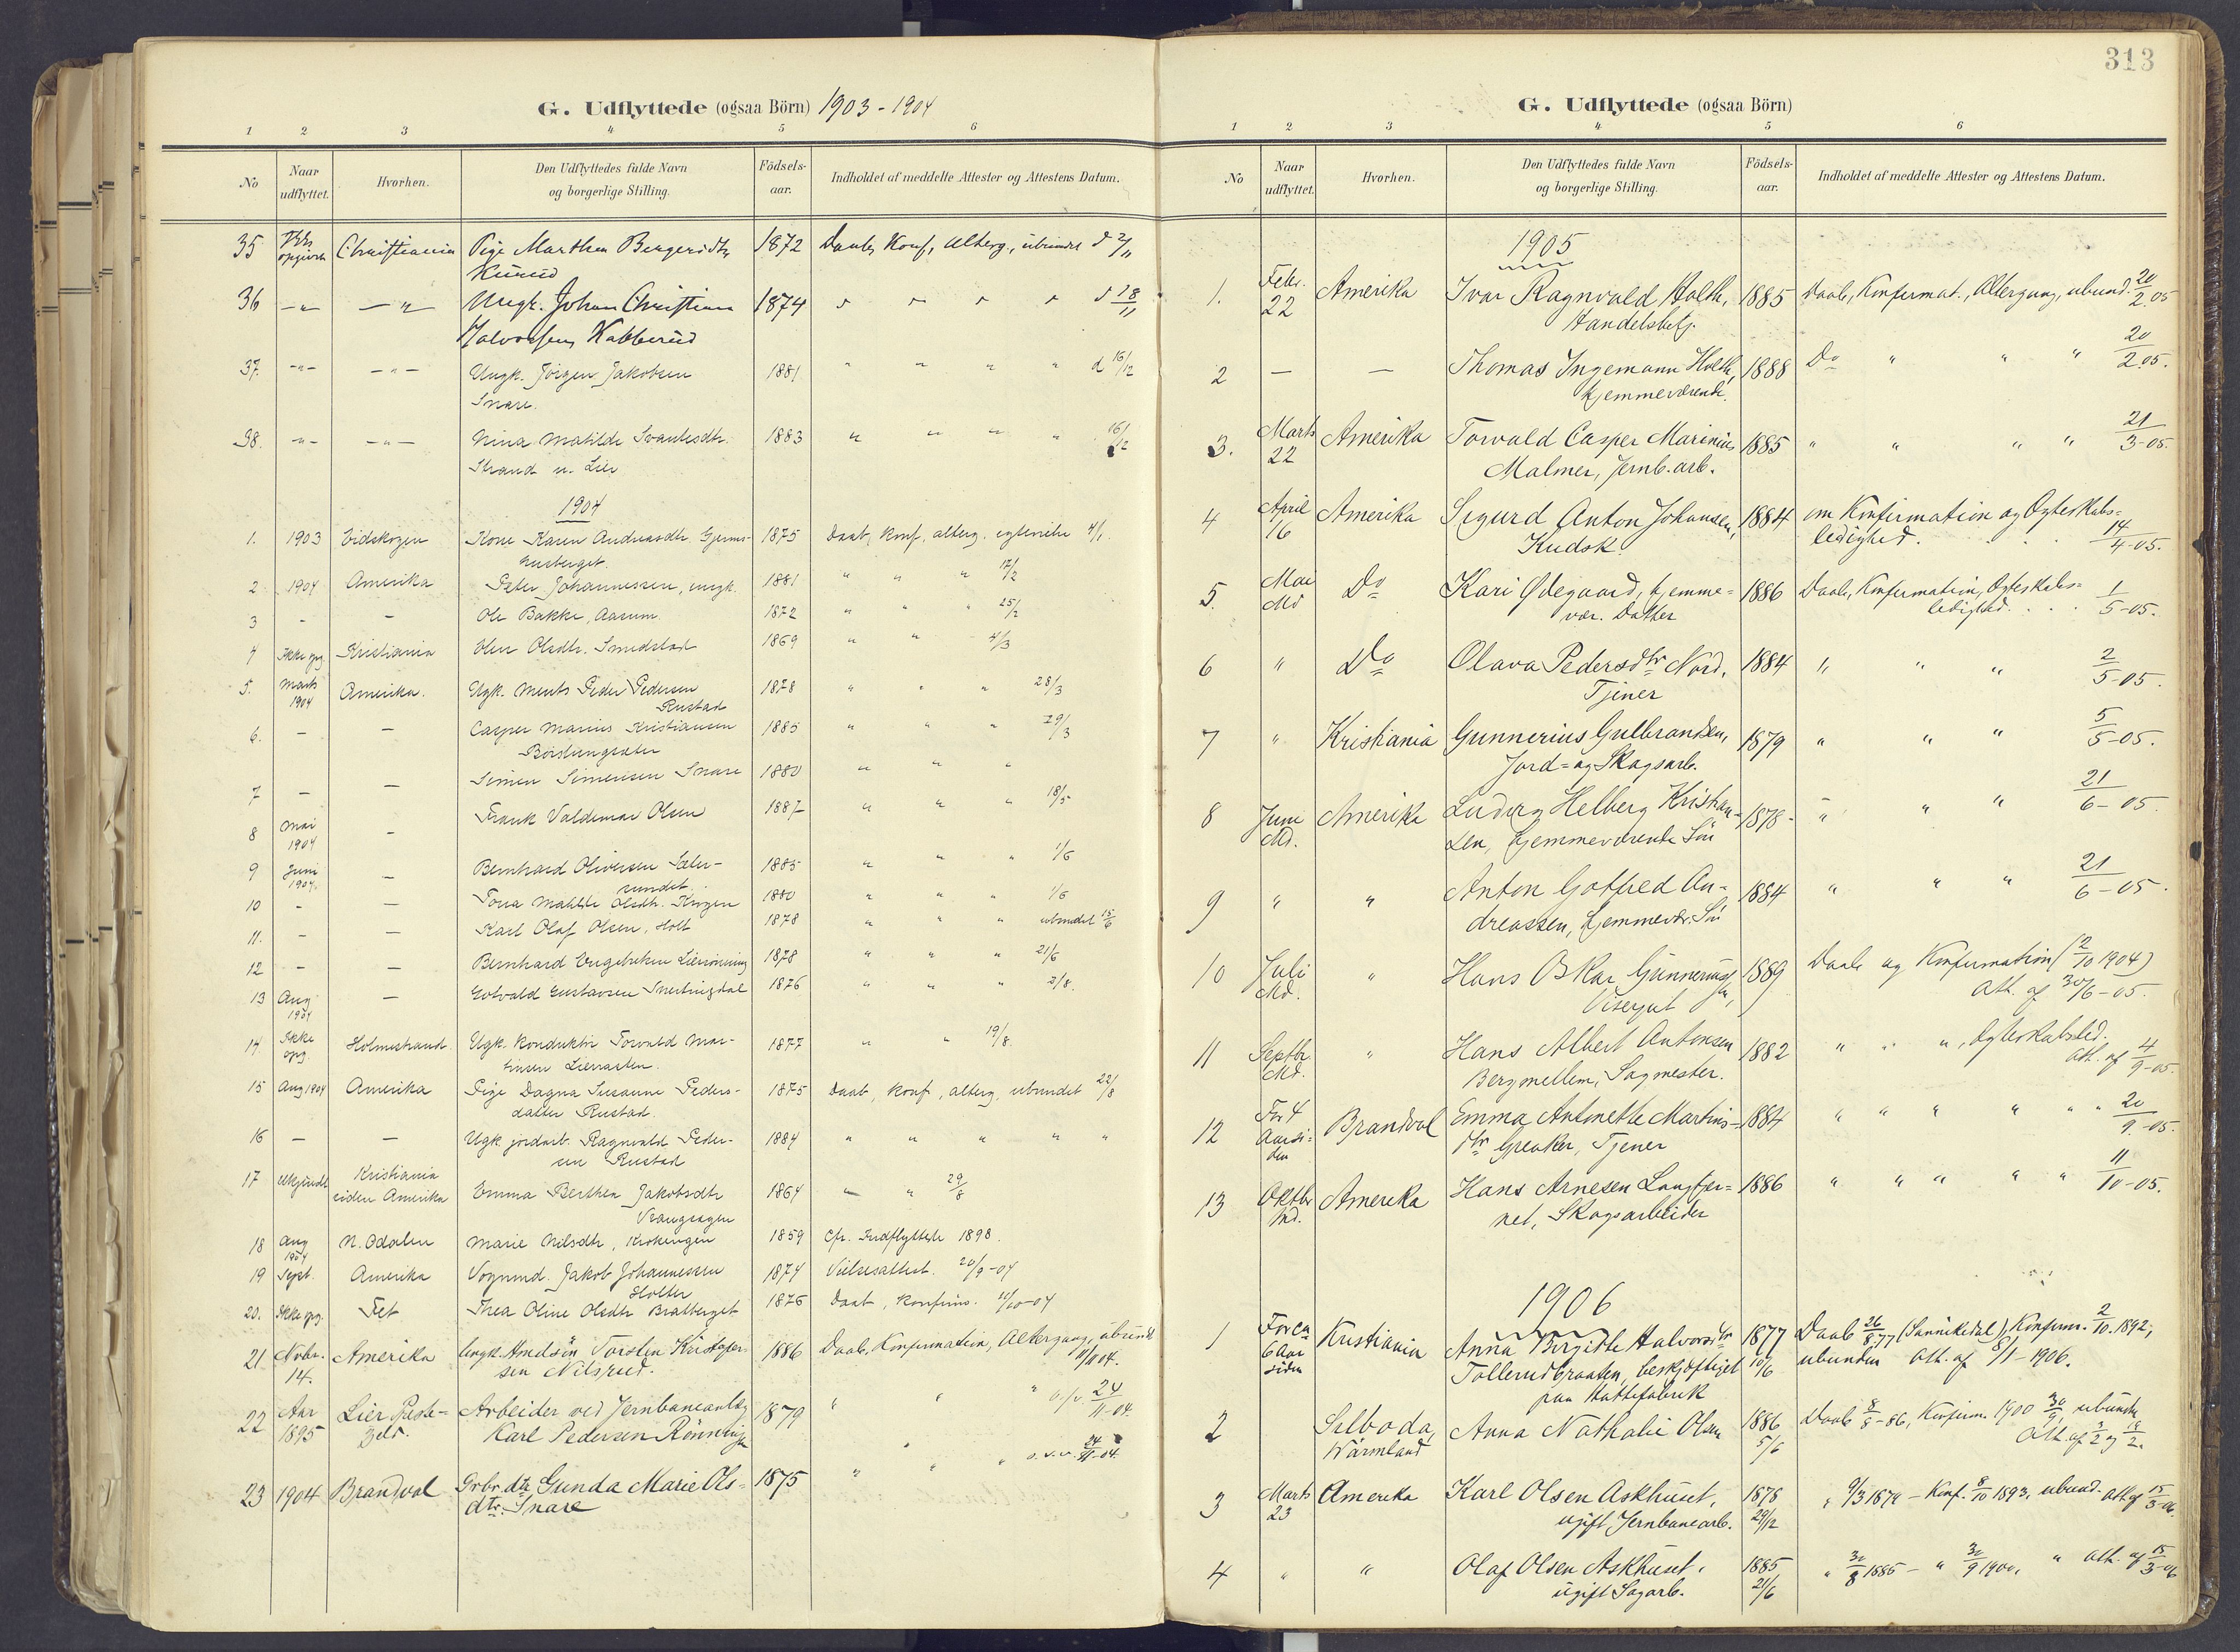 G. Udflyttede (ogsaa Börn) 1903-1904
1 2 3 4 5 6
No Naar udflyttet. Hvorhen. Den Udflyttedes fulde Navn og borgerlige Stilling. Födsels-aar. Indholdet af meddelte Attester og Attestens Datum.
35 Christiania Pige Marthea 1872 Daab, Konf, Alterg., ubundet d 2/11
36 -"- -"- Ungk. Johan Christian 1874 d 18/11
Halvorsen Kabberud
37. -"- -"- Ungk. Jörgen Jakobsen 1881 " " " " d 16/12
Snare.
38. -"- -"- Nina Matilde 1883 " " " " 16/12
Strand u. Lier
1904
1. 1903 Eidskogen Kone Karen Andreasdtr. 1875 Daab, Konf, alterg. 4/1.
2. 1904 Amerika Peter Johannessen, ungk. 1881 " " " 17/2
3 - - Ole Bakke, Aarum. 1872 " " " 25/2
4 Ikke opg. Kristiania Olsdtr. Smedstad 1869 " " 4/3
5. Marts 1904 Amerika. Ugk. Ments Peder Pedersen 1878 " " " 28/3
Rustad
6. - - Casper Marius Kristiansen 1885 " " " 29/3
7 - - Simen Simensen Snare 1880 " " "
8 Mai 1904 - Frank Valdemar Olsen 1887 " " " 18/5
9 Juni 1904. - Bernhard Oliversen Sæter- 1885 " " " 1/6
sundet.
10 - - Matilde Olsdtr. Krogen 1880 " " " 1/6
11. - - Karl Olaf Olsen, Holt 1878 " " " ubundet 15/6
12 - - Bernhard Engebretsen 1878 " " " 21/6
13 Aug 1904 - Gustavsen 1876 " " " 2/8.
14. Ikke opg. Holmestrand. Ugk. Konduktör Torvald Mar- 1877 " " 19/8.
tinsen
15 Aug 1904 Amerika Pige Dagna Susanne Peders- 1875 Daab, Konf, alterg, ubundet 22/8
datter Rustad.
16 - - Ugk. jordarb. Ragnvald Peder- 1884 " " " " "
sen Rustad
17 Kristiania siden Amerika Emma Berthea Jakobsdtr 1864 " " 29/8
18 Aug 1904 N. Odalen Marie Nilsdtr, 1859 Cfr. Indflyttede 1898.
19 Sept. Amerika Vognmd. Jakob Johannessen 1874 Vielsesattest. 20/9-04
Holter
20. Ikke opg. Fet Thea Oline Olsdtr Bratberget 1876 Daab, Konfirm. 11/10-04
21 Novbr. 14. Amerika Ungk. Torsten Kristofer- 1886 Daab, Konfirmation, Altergang, ubundt
sen Nilsrud. 11/11 04.
22 Aar 1895 Lier Præste-gjeld. Arbeider ved Jernbaneanlæg 1879 " " " o.s.v. 24/11-04.
Karl Pedersen Rönningen
23 1904 Brandval Grbr.dtr Gunda Marie Ols- 1875 " " " o.s.v. 24/11-04.
dtr. Snare
313
G. Udflyttede (ogsaa Börn)
1 2 3 4 5 6
No Naar udflyttet. Hvorhen. Den Udflyttedes fulde Navn og borgerlige Stilling. Födsels-aar. Indholdet af meddelte Attester og Attestens Datum.
1905
1. Febr. 22 Amerika Ivar Ragnvald Holth, 1885 Daab, Konfirmat., Altergang, ubund. 20/2.05
Handelsbetj.
2 — — Thomas Ingemann Holth, 1888 Do " " " 20/2.05.
hjemmeværende.
3. Marts 22 Amerika Torvald Casper Marinius 1885 " " " " 21/3-05.
Malmer, Jernb.arb.
4 April 16 Amerika Sigurd Anton Johansen, 1884 om Konfirmation og Ægteskabs-
Kudsk. ledighed. 14/4-05.
5. Mai Md Do Kari Ødegaard, hjemme- 1886 Daab, Konfirmation, Ægteskabs-
vær. Datter ledighed. . . . 1/5-05.
6 " Do Olava Pedersdtr Nord, 1884 " " " 2/5-05.
Tjener
7 " Kristiania Gunnerius Gulbrandsen, 1879 " " " 5/5-05.
Jord- og Skogsarb.
8 Juni Md. Amerika Ludvig Helberg Kristian- 1878 " " " 21/6-05.
sen, hjemmeværende Sön
9 " " Anton Gotfred An- 1884 " " " 21/6-05.
dreassen, hjemmevær. Sön
10 Juli Md. " Hans Oskar Gunneriussen, 1889 Daab og Konfirmation (2/10 1904)
Visergut Att. af 30/6-05.
11 Septbr. Md. " Hans Albert Antonsen 1882 " " ", Ægteskabsled.
Bergmellem, Sagmester. Att. af 4/9-05.
12 For 4 Aar si-den Brandval Emma Antonette Martins- 1884 " " " " " " 20/9.-05.
dtr Greaker, Tjener
13 Oktbr Md. Amerika Hans Arnesen Langtjer- 1886 " " " " " 11/10-05.
net, Skogsarbeider
1906
1 For ca 6 Aar siden Kristiania Anna Birgitte Halvorsdtr 1877 10/6 Daab 26/8.77 (Sannikedal), Konfirm. 2/10.1892;
Tollerudbraaten, beskjæftiget ubunden Att. af 8/1-1906.
paa Hattefabrik
2 Silboda, Wärmland Anna Nathalie Olsen 1886 5/6 Daab 8/8-86, Konfirm. 1900 30/9, ubunden
3 Marts 23 Amerika Karl Olsen Askhuset, 1878 29/12 " 9/3 1879 - Konf. 8/10 1893, ubund. Att. af 15/3-06.
ugift Jernbanearb.
4 " " Olaf Olsen Askhuset, 1885 21/6 " 30/8 1885 - " 30/9 1900, " Att. af 15/3-06
ugift Sagarb.